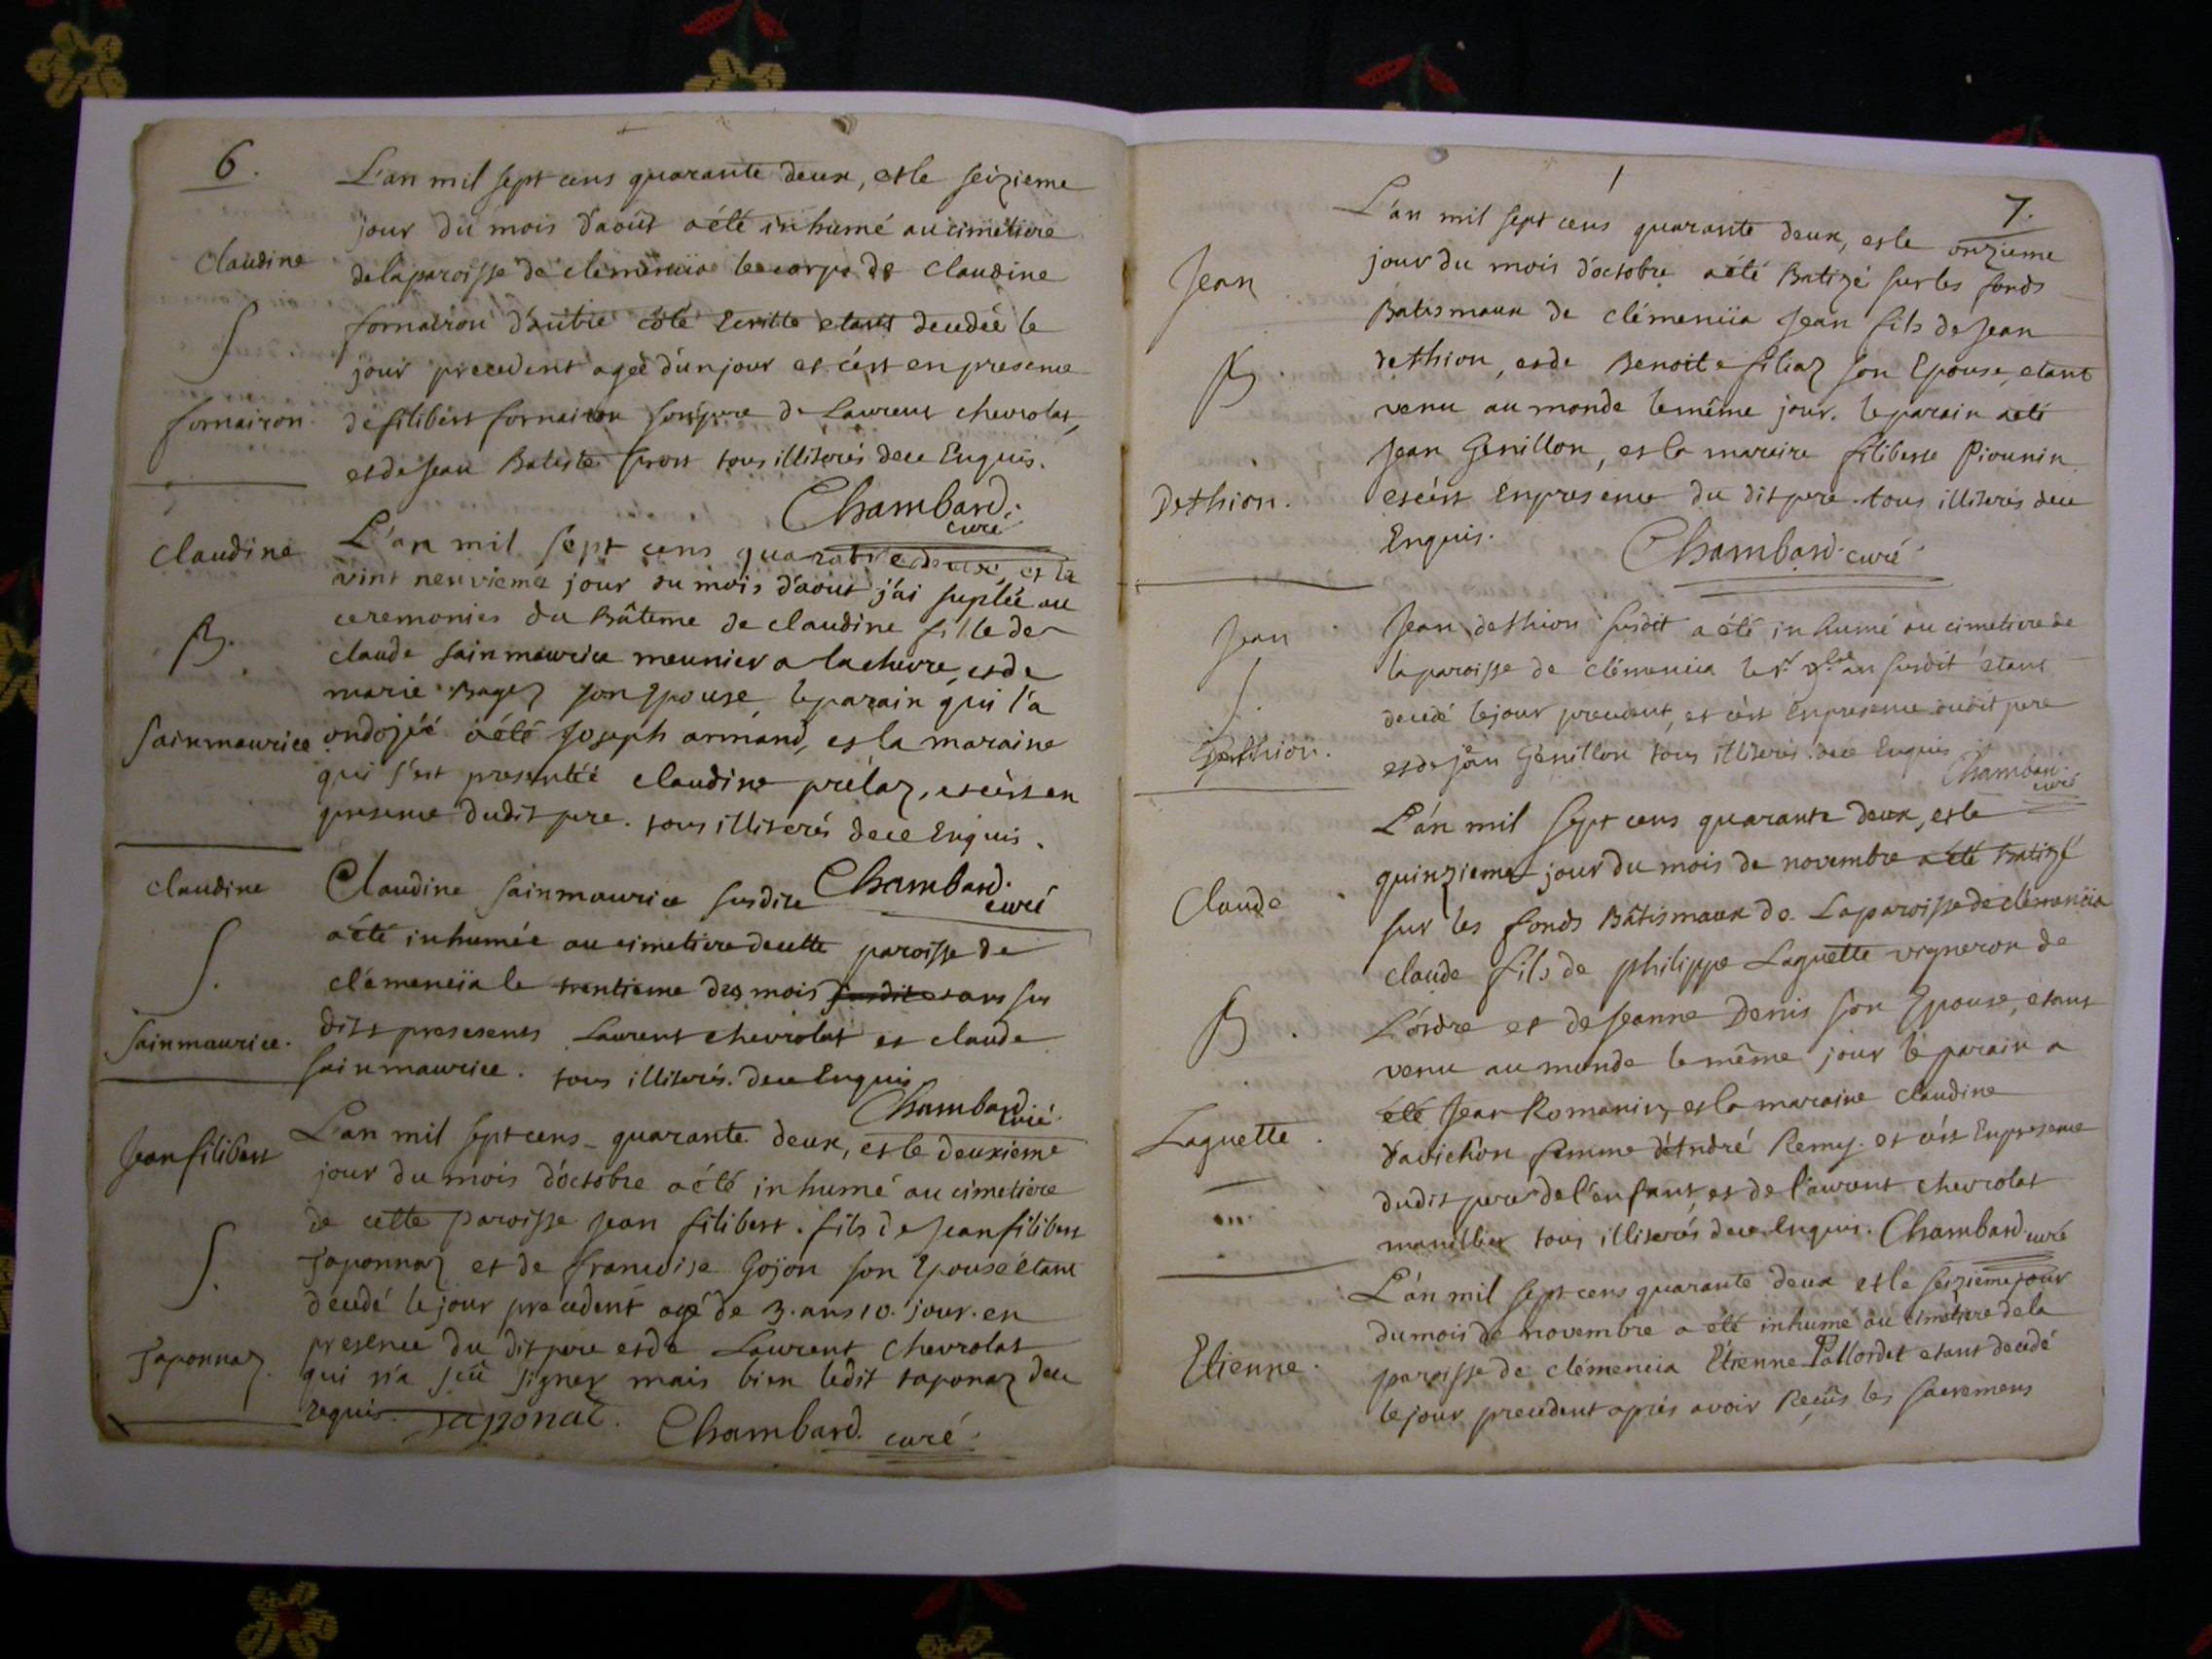 6.
L'an mil sept cens quarante deux, et le seizieme
jour du mois d'août a été inhumé au cimetiere
Claudine
de la paroisse de clemenciia le corps de Claudine
fornairon d'autre côté étant decedée le
S
jour precedent agée d'un jour et c'est en presence
fornairon.
de filibert fornairon son pere de Laurent chevrolat,
et de Jean Batiste tous illiterés de ce Enquis.
Chambard.
curé
Claudine
L'an mil sept cens quarante deux, et le
vint neuvieme jour du mois d'aout j'ai suplée au
ceremonies du Bâteme de claudine fille de
B.
claude sainmaurice meunier a la chevre, et de
marie Bagez son Epouse, le parain qui l'a
Sainmaurice
ondojéé a été Joseph armand, et la maraine
qui s'est presentéé claudine prélaz, et c'est en
presence dudit pere. tous illiterés de ce Enquis.
claudine
Claudine sainmaurice susdite Chambard.
curé
a été inhumée au cimetiere de cette paroisse de
S.
clémenciia le trentieme des mois et ans sus
dits presesents Laurent chevrolat et claude
Sainmaurice.
sainmaurice. tous illiterés. de ce Enquis
Chambard.
curé.
Jean filibert
L'an mil sept cens quarante deux, et le deuxieme
jour du mois d'octobre a été inhumé au cimetiere
de cette paroisse Jean filibert. fils de Jean filibert
S.
Taponnaz et de francoise Gojon son Epouse étant
decedé le jour precedent agé de 3. ans 10. jour. en
presence du dit pere et de Laurent chevrolat
Taponnaz.
qui n'a sçû signer mais bien ledit taponaz de ce
requis. Taponaz. Chambard. curé.
7.
L'an mil sept cens quarante deux, et le onzieme
Jean
jour du mois d'octobre a été Batizé sur les fonds
Batismaux de clémenciia Jean fils de Jean
B.
dethion, et de Benoite filiaz son Epouse, etant
venu au monde le même jour. le parain a été
Jean Genillon, et la maraine filiberte Piounin
Dethion.
et c'est Enpresence du dit pere. tous illiterés de ce
Enquis.
Chambard. curé
Jean
Jean dethion susdit a été inhumé au cimetiere de
la paroisse de clémenciia le an susdit étant
S.
decedé le jour precedent, et c'est Enpresence dudit pere
Dethion.
et de jean Génillon tous illiterés. de ce Enquis
Chambard.
curé
L'an mil sept cens quarante deux, et le
quinzieme jour du mois de novembre a été Batizé
Claude
sur les fonds Bâtismaux de Laparoisse de clémenciia
claude fils de philippe Laguette vigneron de
B.
L'ordre et de Jeanne Denis son Epouse, etant
venu au monde le même jour le parain a
été Jean Romanin, et la maraine Claudine
Laguette.
davichon femme d'André Remy. et c'est Enpresence
dudit pere de l'enfant, et de l'aurent chevrolat
manillier tous illiterés de ce Enquis. Chambard. curé
L'an mil sept cens quarante deux et le seizieme jour
du mois de novembre a été inhumé au cimetiere de la
Etienne.
paroisse de clémenciia Etienne Pallordet etant decedé
le jour precedent aprés avoir Reçûs les sacremens